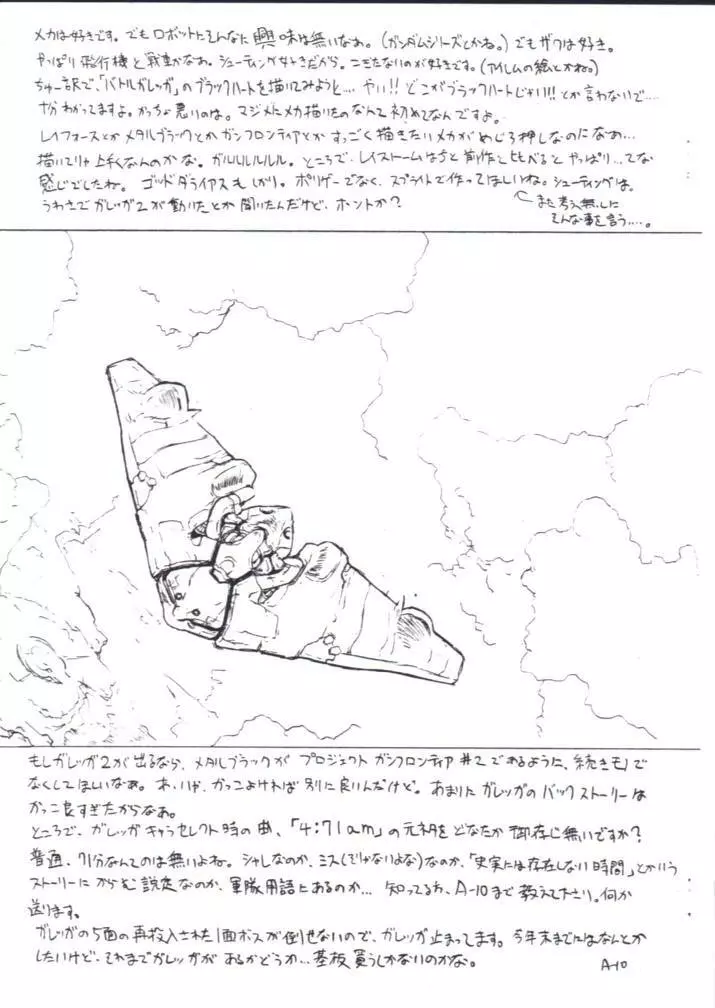 メカは好きです。でもロボットにそんなに興味は無いなあ。(ガンダムシリーズとかね。)でもザクは好き。
やっぱり飛行機と戦車かなあ。シューティング好きだから。こぎたないのが好きです。(アイレムの絵とかね。)
ちゅー訳で、「バトルガレッガ」のブラックハートを描いてみようと… やい!!どこがブラックハートじゃい!!とか言わないで…
十分わかってますよ。かっちょ悪いのは。マジメにメカ描いたのなんて初めてなんですよ。
レイフォースとかメタルブラックとかガンフロンティアとか すっごく描きたいメカがめじろ押しなのになあ…
描いてりゃ上手くなんのかな。ガルルルルルル。ところで、レイストームはちと前作と比べるとやっぱり…てな
感じでしたね。ゴッドダライアスもしかり。ポリゲーでなく、スプライトで作ってほしいね。シューティングは。
うわさでガレッガ2が動いたとか聞いたんだけど、ホントか?
また考え無しに
そんな事を言う…。
もしガレッガ2が出るなら、メタルブラックが プロジェクトガンフロンティア#2であるように、続きモノで
なくしてほしいなあ。あ、いや、かっこよければ別に良いんだけど。あまりにガレッガのバックストーリーは
かっこ良すぎたからなあ。
ところで、ガレッガ キャラセレクト時の曲、「4:71am」の元ネタをどなたか御存じ無いですか?
普通、71分なんてのは無いよね。シャレなのか、ミス(じゃないよな)なのか、「史実には存在しない時間」とかいう
ストーリーにからむ設定なのか、軍隊用語にあるのか… 知ってる方、A-10まで教えて下さい。何か
送ります。
ガレッガの5面の再投入された1面ボスが倒せないので、ガレッガ止まってます。今年末までにはなんとか
したいけど、それまでガレッガがあるかどうか…基板買うしかないのかな。
A-10